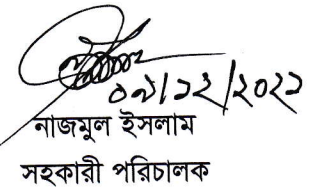 ০৯/১২/২০২১
নাজমুল ইসলাম
সহকারী পরিচালক